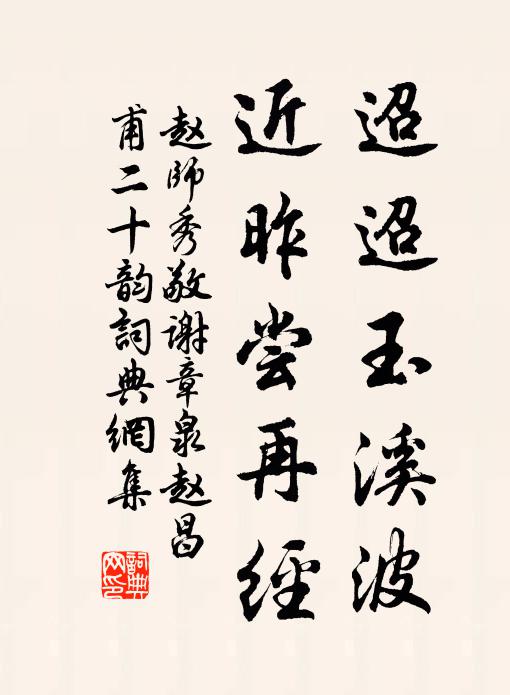 迢迢玉溪波
近昨尝再經
赵師秀敬谢章泉赵昌
甫二十韵詞典網集
詞典
网印